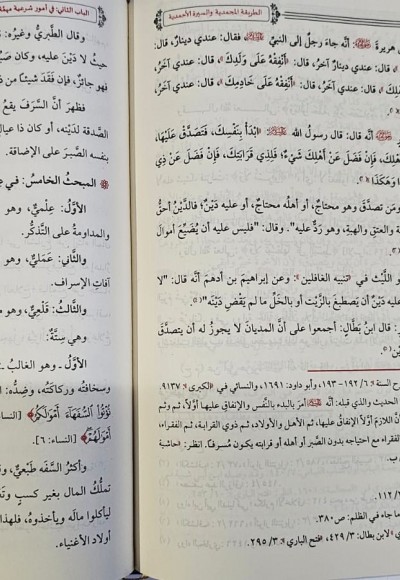 الطريقة المحمدية والسيرة الأحمدية
هريرةَ ﷺ: أنَّه جاءَ رجلٌ إلى النبيِّ ﷺ فقال: عندي دينارٌ، قال:
قال: عندي دينارٌ آخرُ، قال: «أَنْفِقْهُ على وَلَدِكَ»، قال: عندي آخرُ،
لِكَ»، قال: عندي آخرُ، قال: «أَنْفِقْهُ عَلَى خَادِمِكَ»، قال: عندي آخرُ،
ﷺ أنَّه قال: قال رسولُ الله ﷺ: «ابْدَأْ بِنَفْسِكَ، فَتَصَدَّقْ عَلَيْهَا،
هْلِكَ، فَإِنْ فَضَلَ عَنْ أَهْلِكَ شَيْءٌ؛ فَلِذِي قَرَابَتِكَ، فَإِنْ فَضَلَ عَنْ ذِي
ا وَهَكَذَا»
ومَن تصدَّقَ وهو محتاجٌ، أو أهلُه محتاجٌ، أو عليه دَيْنٌ؛ فالدَّيْنُ أحقُّ
ةِ والعتقِ والهبةِ، وهو ردٌّ عليه". وقال: "فليس عليه أن يُضَيِّعَ أموالَ
و اللَّيْث في «تنبيه الغافلين»: وعن إبراهيم بن أدهمَ أنَّه قال: "لا
عليه دَيْنٌ أن يَصطبغَ بالزَّيْتِ أو بالخَلِّ ما لم يَقْضِ دَيْنَه"
: قال ابنُ بطَّال: أجمعوا على أنَّ المديانَ لا يجوزُ له أن يتصدَّقَ
رح السنة» ٦/ ١٩٢-١٩٣، وأبو داود: ١٦٩١، والنسائي في «الكبرى»: ٩١٣٧.
الحديث والذي قبله: أنَّه ﷺ أمرَ بالبدء بالنَّفْس والإنفاقِ عليها أوَّلاً، ثم وثم
أنَّ اللازمَ أوَّلاً الإنفاقُ عليها، ثم الأهل والأولاد، ثم ذوي القرابة، ثم الفقراء،
فقراء مع احتياجه بدون الصَّبر أو أهله أو قرابته يكون مُسرفاً. انظر: «حاشية
١١٢/
ما جاء في الظلم: ص٣٨٠.
ي» لابن بطال: ٣/ ٤٢٩، «فتح الباري»: ٣/ ٢٩٥.
الباب الثاني: في أمور شرعية مهمة
وقال الطَّبريُّ وغيرُه:
حيثُ لا دَيْنَ عليه، وكان
فهو جائزٌ، فإن فَقَدَ شيئاً من
فظهرَ أنَّ السَّرَفَ يقعُ
الصَّدقةِ لدَيْنِه، أو كان ذا عيالٍ
بنفسِه الصَّبرَ على الإضاقةِ.
المبحثُ الخامسُ: في
الأوَّلُ: عِلْميٌّ، وهو
والمداومةُ على التَّذكُّرِ.
والثَّاني: عَمَليٌّ، وهو
آفاتِ الإسرافِ.
والثَّالثُ: قَلْعيٌّ، وهو
وهي سِتَّةٌ:
الأوَّلُ ـ وهو الغالبُ ـ
وسخافتُه وركاكتُه، وضِدُّه:
تُؤْتُوا۟ ٱلسُّفَهَآءَ أَمْوَٰلَكُمُ﴾ [النساء:
أَمْوَٰلَهُمْ﴾ [النساء: ٦].
وأكثرُ السَّفَهِ طَبْعيٌّ،
تملُّكُ المالِ بغيرِ كسبٍ
ليأكلوا مالَه ويأخذوه، فلهذا
أولادِ الأغنياءِ.